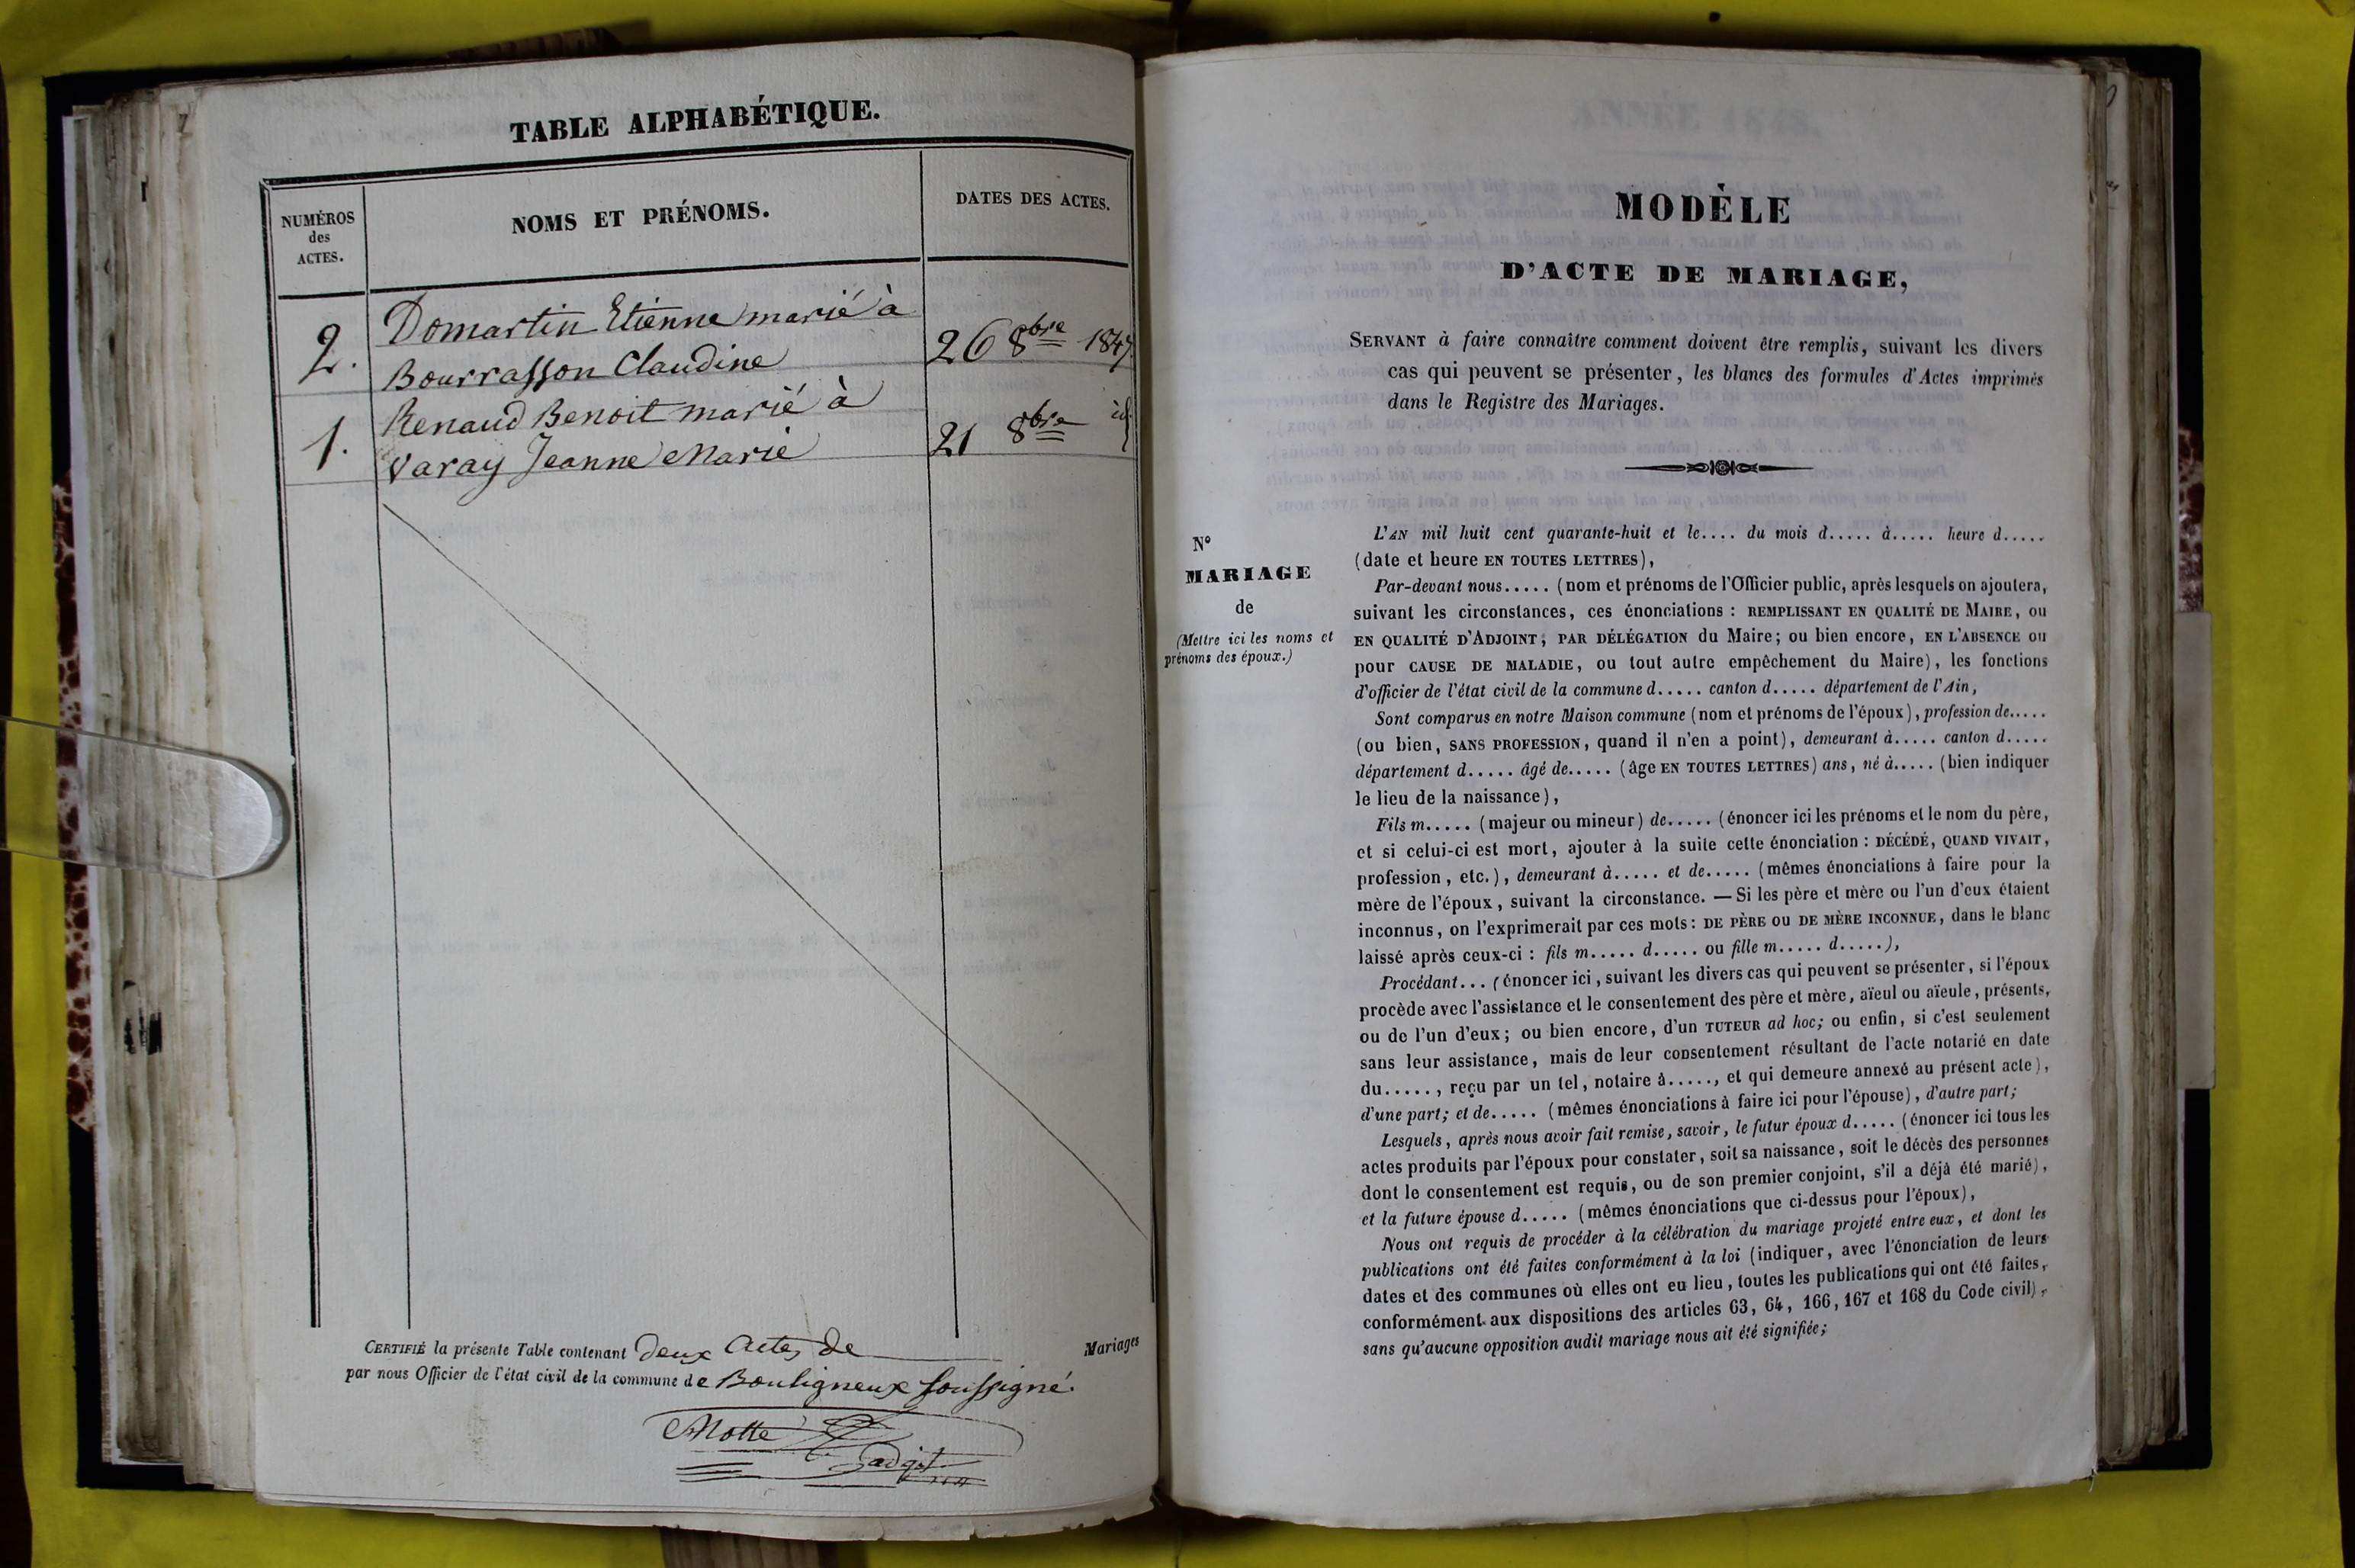 TABLE ALPHABÉTIQUE.
NUMÉROS
des
ACTES.
NOMS ET PRÉNOMS.
DATES DES ACTES.
2.
Domartin Etienne marié à
Bourrasson Claudine
26 8bre 1847
1.
Renaud Benoit marié à
Varay Jeanne Marie
21 8bre id
CERTIFIÉ la présente Table contenant deux Actes de Mariages
par nous Officier de l'état civil de la commune de Bouligneux soussigné.
Motte
adjt
MODÈLE
D'ACTE DE MARIAGE,
SERVANT à faire connaître comment doivent être remplis, suivant les divers
cas qui peuvent se présenter, les blancs des formules d'Actes imprimés
dans le Registre des Mariages.
N°
MARIAGE
de
(Mettre ici les noms et
prénoms des époux.)
L'AN mil huit cent quarante-huit et le.... du mois d..... à..... heure d.....
(date et heure EN TOUTES LETTRES),
Par-devant nous..... (nom et prénoms de l'Officier public, après lesquels on ajoutera,
suivant les circonstances, ces énonciations : REMPLISSANT EN QUALITÉ DE MAIRE, ou
EN QUALITÉ D'ADJOINT, PAR DÉLÉGATION du Maire; ou bien encore, EN L'ABSENCE ou
pour CAUSE DE MALADIE, ou tout autre empêchement du Maire), les fonctions
d'officier de l'état civil de la commune d..... canton d..... département de l'Ain,
Sont comparus en notre Maison commune (nom et prénoms de l'époux), profession de.....
(ou bien, SANS PROFESSION, quand il n'en a point), demeurant à..... canton d.....
département d..... âgé de..... (âge EN TOUTES LETTRES) ans, né à..... (bien indiquer
le lieu de la naissance),
Fils m..... (majeur ou mineur) de..... (énoncer ici les prénoms et le nom du père,
et si celui-ci est mort, ajouter à la suite cette énonciation : DÉCÉDÉ, QUAND VIVAIT,
profession, etc.), demeurant à..... et de..... (mêmes énonciations à faire pour la
mère de l'époux, suivant la circonstance. — Si les père et mère ou l'un d'eux étaient
inconnus, on l'exprimerait par ces mots : DE PÈRE OU DE MÈRE INCONNUE, dans le blanc
laissé après ceux-ci : fils m..... d..... ou fille m..... d.....),
Procédant... (énoncer ici, suivant les divers cas qui peuvent se présenter, si l'époux
procède avec l'assistance et le consentement des père et mère, aïeul ou aïeule, présents,
ou de l'un d'eux; ou bien encore, d'un TUTEUR ad hoc; ou enfin, si c'est seulement
sans leur assistance, mais de leur consentement résultant de l'acte notarié en date
du....., reçu par un tel, notaire à....., et qui demeure annexé au présent acte),
d'une part; et de..... (mêmes énonciations à faire ici pour l'épouse), d'autre part;
Lesquels, après nous avoir fait remise, savoir, le futur époux d..... (énoncer ici tous les
actes produits par l'époux pour constater, soit sa naissance, soit le décès des personnes
dont le consentement est requis, ou de son premier conjoint, s'il a déjà été marié),
et la future épouse d..... (mêmes énonciations que ci-dessus pour l'époux),
Nous ont requis de procéder à la célébration du mariage projeté entre eux, et dont les
publications ont été faites conformément à la loi (indiquer, avec l'énonciation de leurs
dates et des communes où elles ont eu lieu, toutes les publications qui ont été faites,
conformément aux dispositions des articles 63, 64, 166, 167 et 168 du Code civil),
sans qu'aucune opposition audit mariage nous ait été signifiée;